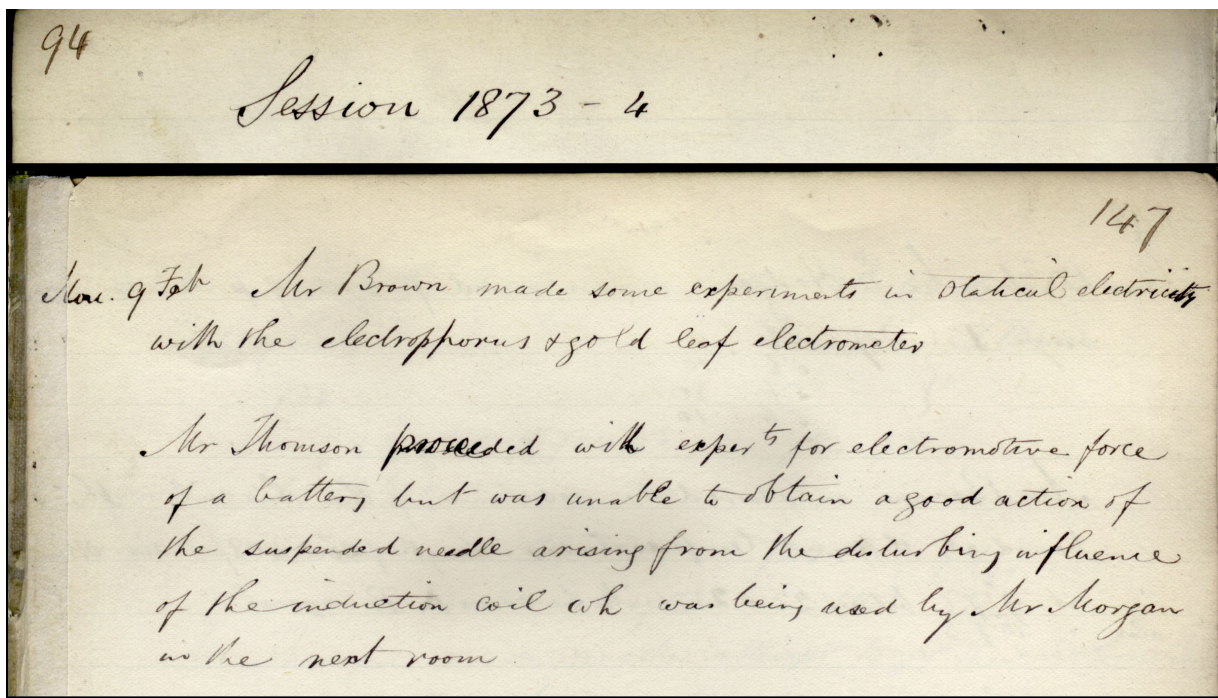 94
Session 1873 - 4
147
Mon. 9 Feb Mr Brown made some experiments in statical electricity
with the electrophorus & gold leaf electrometer
Mr Thomson proceeded with exper ts for electromotive force
of a battery but was unable to obtain a good action of
the suspended needle arising from the disturbing influence
of the induction coil wh was being used by Mr Morgan
in the next room